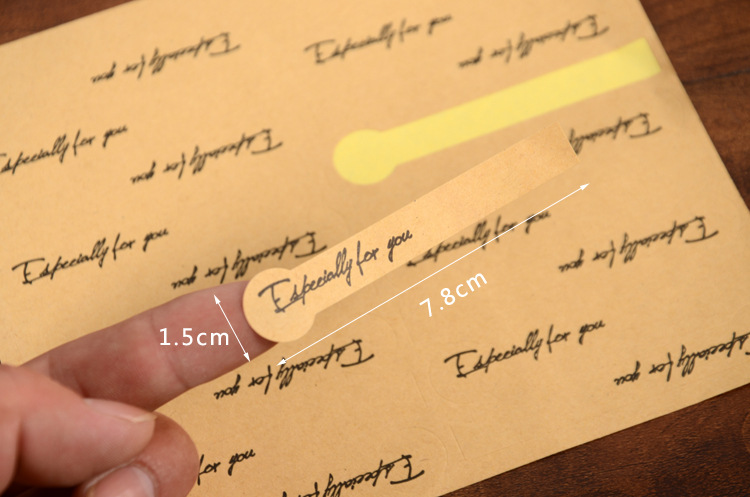 Especially for you
Especially for you
Especially for you
Especially for you
Especially for you
Especially for you
Especially for you
Especially for you
Especially for you
Especially for you
Especially for you
Especially for you
7.8cm
1.5cm
Especially for you
Especially for you
Especially for you
for you
Especially for you